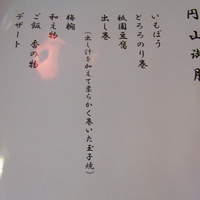 円山御膳
いもぼう
とろろのり巻
祇園豆腐
出し巻
(出し汁を加えて柔らかく巻いた玉子焼)
梅椀
和え物
ご飯 香の物
デザート